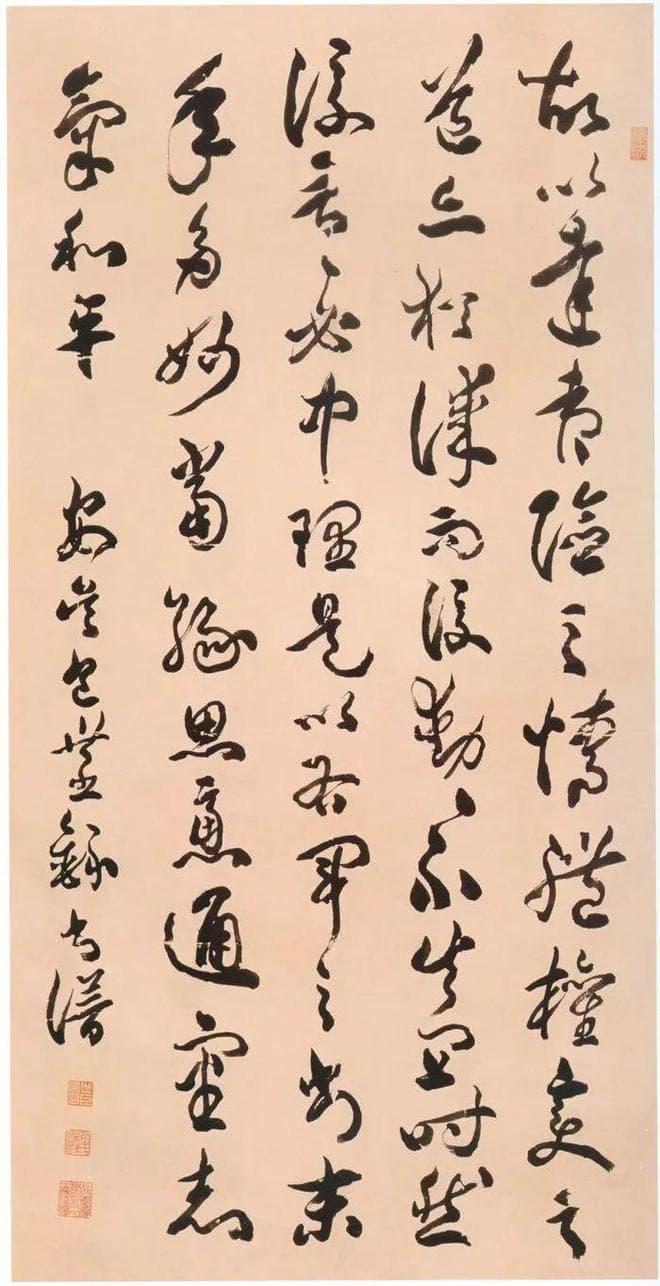 故以達夷險之情體權變之
道亦猶謀而後動〻不失宜時然
後言〻必中理是以右軍之書末
年多妙當緣思慮通審志
氣和平 安吳包世臣錄書譜